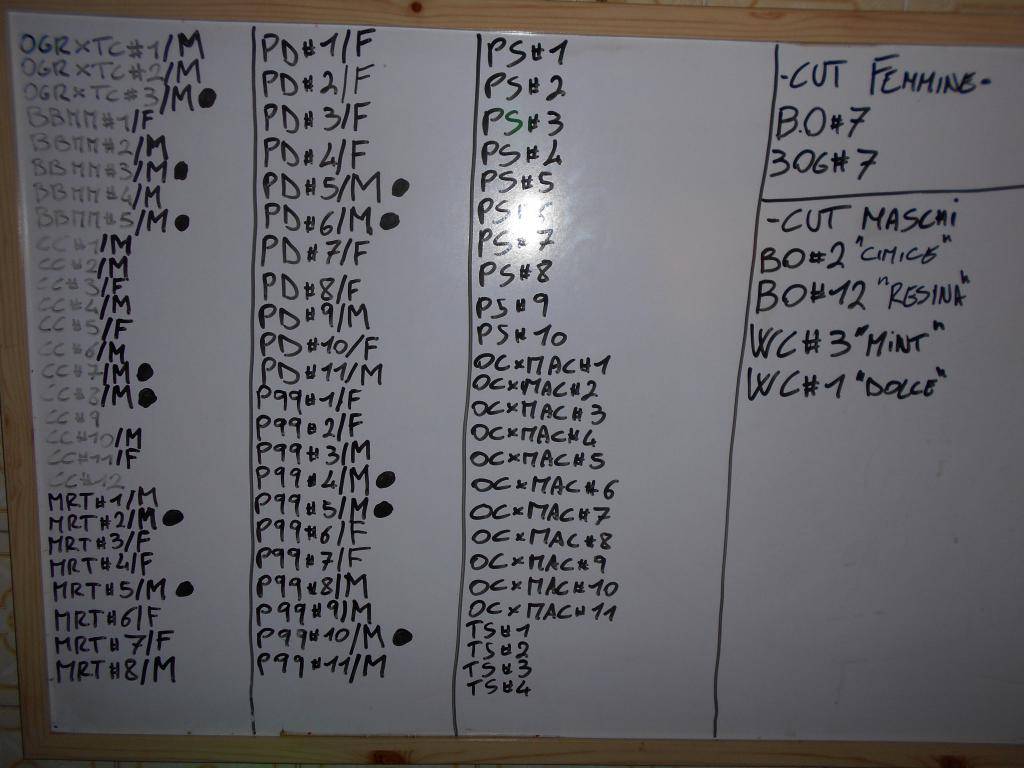 OGR×TC#1/M
OGR×TC#2/M
OGR×TC#3/M ●
BBMM#1/F
BBMM#2/M
BBMM#3/M ●
BBMM#4/M
BBMM#5/M ●
CC#1/M
CC#2/M
CC#3/F
CC#4/M
CC#5/F
CC#6/M
CC#7/M ●
CC#8/M ●
CC#9
CC#10/M
CC#11/F
CC#12
MRT#1/M
MRT#2/M ●
MRT#3/F
MRT#4/F
MRT#5/M ●
MRT#6/F
MRT#7/F
MRT#8/M
PD#1/F
PD#2/F
PD#3/F
PD#4/F
PD#5/M ●
PD#6/M ●
PD#7/F
PD#8/F
PD#9/M
PD#10/F
PD#11/M
P99#1/F
P99#2/F
P99#3/M
P99#4/M ●
P99#5/M ●
P99#6/F
P99#7/F
P99#8/M
P99#9/M
P99#10/M ●
P99#11/M
PS#1
PS#2
PS#3
PS#4
PS#5
PS#6
PS#7
PS#8
PS#9
PS#10
OC×MAC#1
OC×MAC#2
OC×MAC#3
OC×MAC#4
OC×MAC#5
OC×MAC#6
OC×MAC#7
OC×MAC#8
OC×MAC#9
OC×MAC#10
OC×MAC#11
TS#1
TS#2
TS#3
TS#4
-CUT FEMMINE-
B.O#7
3OG#7
-CUT MASCHI
BO#2 "CIMICE"
BO#12 "RESINA"
WC#3 "MINT"
WC#1 "DOLCE"